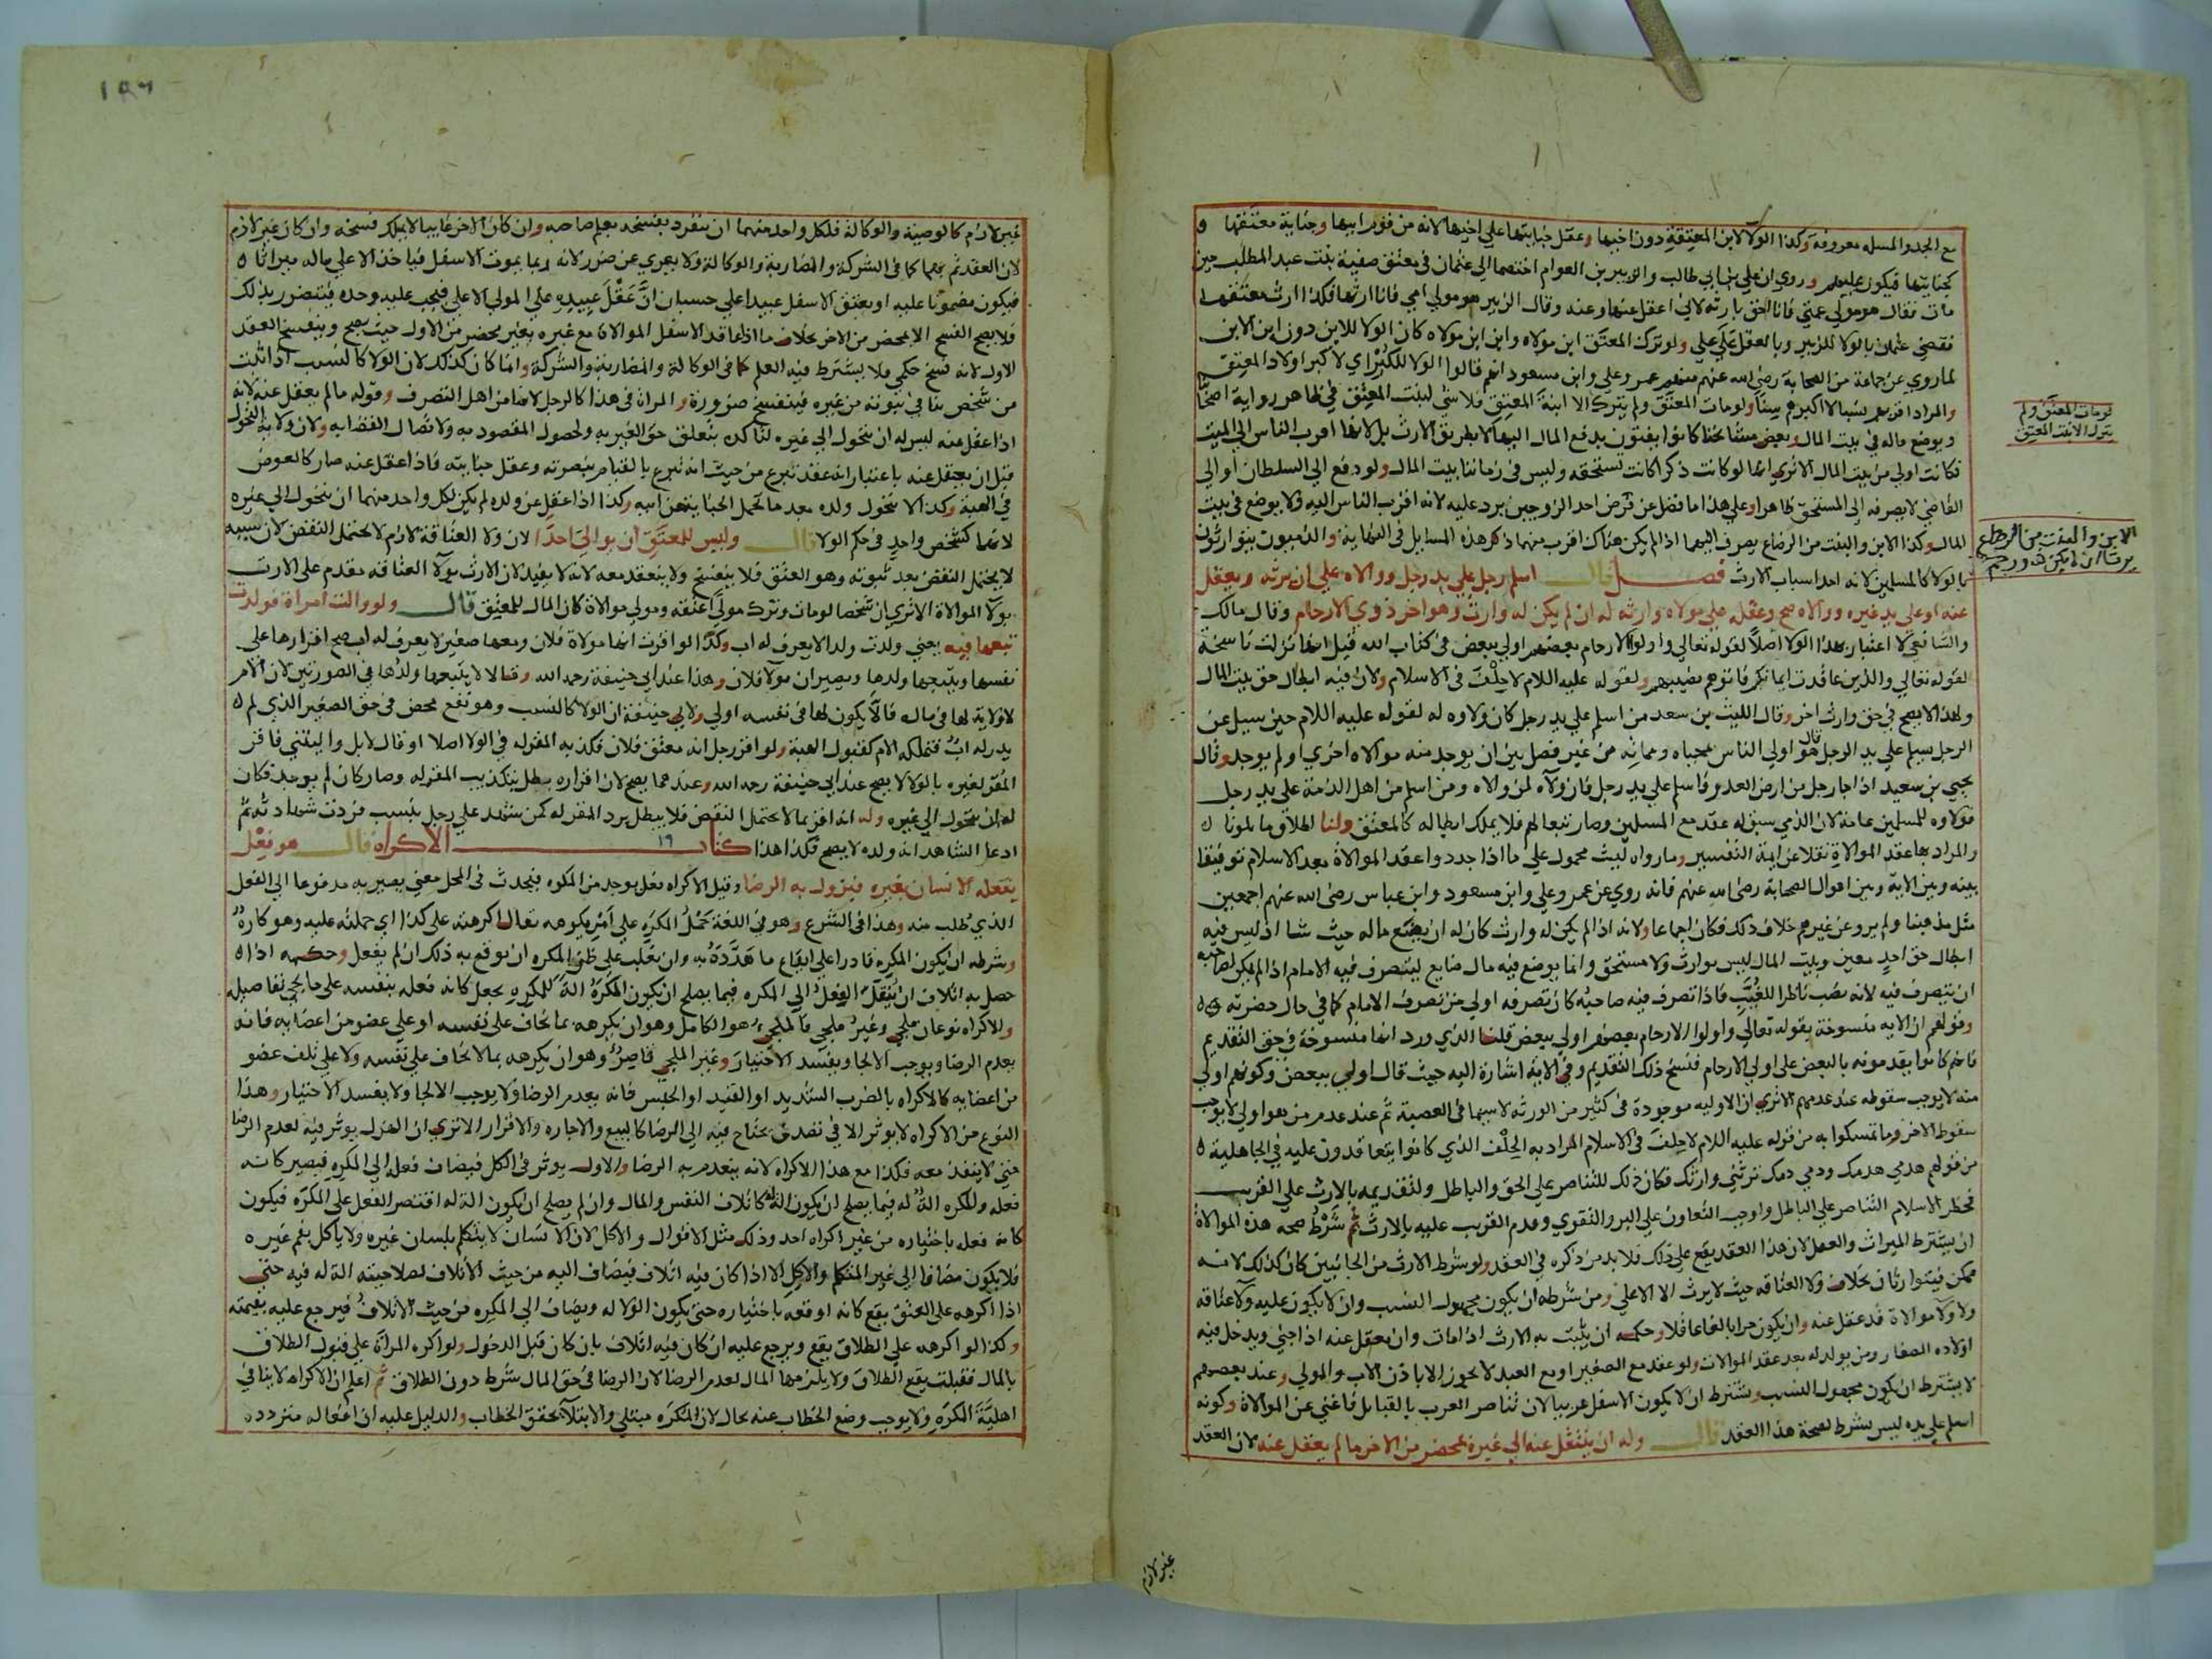 مع الجد والمسله معروفة وكذا الولا لابن المعتقة دون اخيها وعقل جنايتها علي اخيها لانه من قوم ابيها وجناية معتقها
كجنايتها فيكون عليهم وروي ان علي بن ابي طالب والزبير بن العوام اختصما الي عثمان في معتق صفية بنت عبد المطلب حين
مات فقال هو مولي عمتي فانا احق بارثه لاني اعقل عنها وعنه وقال الزبير هو مولي امي فانا ارثها فكذا ارث معتقها
فقضي عثمان بالولا للزبير وبالعقل علي علي ولو ترك المعتق ابن مولاه وابن ابن مولاه كان الولا للابن دون ابن الابن
لما روي عن جماعة من الصحابة رضي الله عنهم منهم عمر وعلي وابن مسعود انهم قالوا الولا للكبر اي لاكبر اولاد المعتق
والمراد اقربهم نسبا لا اكبرهم سنا ولو مات المعتق ولم يترك الا ابنة المعتق فلا شي لبنت المعتق في ظاهر رواية اصحابنا
ويوضع ماله في بيت المال وبعض مشائخنا كانوا يفتون بدفع المال اليها لا بطريق الارث بل لانها اقرب الناس الي الميت
فكانت اولي من بيت المال الا تري انها لو كانت ذكرا كانت تستحقه وليس في زماننا بيت المال ولو دفع الي السلطان او الي
القاضي لا يصرفه الي المستحق ظاهرا وعلي هذا ما فضل عن فرض احد الزوجين يرد عليه لانه اقرب الناس اليه ولا يوضع في بيت
المال وكذا الابن والبنت من الرضاع يصرف اليهما اذا لم يكن هناك اقرب منهما ذكر هذه المسايل في النهاية والذميون يتوارثون
بالولا كالمسلمين لانه احد اسباب الارث فصل قال اسلم رجل علي يد رجل ووالاه علي ان يرثه ويعقل
عنه او علي يد غيره ووالاه صح وعقله علي مولاه وارثه له ان لم يكن له وارث وهو اخر ذوي الارحام وقال مالك
والشافعي لا اعتبار بهذا الولا اصلا لقوله تعالي واولوا الارحام بعضهم اولي ببعض في كتاب الله قيل انها نزلت ناسخة
لقوله تعالي والذين عاقدت ايمانكم فاتوهم نصيبهم ولقوله عليه اللام لا حلف في الاسلام ولان فيه ابطال حق بيت المال
ولهذا لا يصح في حق وارث اخر وقال الليث بن سعد من اسلم علي يد رجل كان ولاوه له لقوله عليه اللام حين سيل عن
الرجل يسلم علي يد الرجل قال هو اولي الناس بمحياه ومماته من غير فصل بين ان يوجد منه موالاه اخري او لم يوجد وقال
يحيي بن سعيد اذا جا رجل من ارض العدو فاسلم علي يد رجل فان ولاه لمن والاه ومن اسلم من اهل الذمة علي يد رجل
فولاوه للمسلمين عامة لان الذمي سبق له عقد مع المسلمين وصار تبعا لهم فلا يملك ابطاله كالمعتق ولنا اطلاق ما تلونا
والمراد بها عقد الموالاة نقلا عن ايمة التفسير وما رواه ليث محمول علي ما اذا جددوا عقد الموالاة بعد الاسلام توفيقا
بينه وبين الاية وبين اقوال الصحابة رضي الله عنهم فانه روي عن عمر وعلي وابن مسعود وابن عباس رضي الله عنهم اجمعين
مثل مذهبنا ولم يرو عن غيرهم خلاف ذلك فكان اجماعا ولانه اذا لم يكن له وارث كان له ان يضع ماله حيث شا اذ ليس فيه
ابطال حق احد معين وبيت المال ليس بوارث ولا مستحق وانما يوضع فيه مال ضايع ليتصرف فيه الامام اذا لم يكن لصاحبه
ان يتصرف فيه لانه نصب ناظرا للغيب فاذا تصرف فيه صاحبه كان تصرفه اولي من تصرف الامام كما في حال حضرته
وقولهم ان الايه منسوخة بقوله تعالي واولوا الارحام بعضهم اولي ببعض قلنا الذي ورد انها منسوخة في حق التقديم
فانهم كانوا يقدمونه بالبعض علي اولي الارحام فنسخ ذلك التقديم وفي الاية اشارة اليه حيث قال اولي ببعض وكونهم اولي
منه لا يوجب سقوطه عند عدمهم الا تري ان الاوليه موجودة في كثير من الورثه لا سيما في العصبة ثم عند عدم من هو اولي لا يوجب
سقوط الاخر وما تمسكوا به من قوله عليه اللام لا حلف في الاسلام المراد به الحلف الذي كانوا يتعاقدون عليه في الجاهلية
من قولهم هدمي هدمك ودمي دمك ترثني وارثك فكان ذلك للتناصر علي الحق والباطل ولتقديمه بالارث علي القريب
فحظر الاسلام التناصر علي الباطل واوجب التعاون علي البر والتقوي وقدم القريب عليه بالارث ثم شرط صحه هذه الموالاة
ان يشترط الميراث والعقل لان هذا العقد يقع علي ذلك فلا بد من ذكره في العقد ولو شرط الارث من الجانبين كان كذلك لانه
ممكن فيتوارثان بخلاف ولا العتاقه حيث لا يرث الا الاعلي ومن شرطه ان يكون مجهول النسب وان لا يكون عليه ولا عتاقه
ولا ولا موالاة قد عقل عنه وان يكون حرا بالغا عاقلا وحكمه ان يثبت به الارث اذا مات وان يعقل عنه اذا جني ويدخل فيه
اولاده الصغار ومن يولد له بعد عقد الموالات ولو عقد مع الصغير او مع العبد لا يجوز الا باذن الاب والمولي وعند بعضهم
لا يشترط ان يكون مجهول النسب ويشترط ان لا يكون الاسفل عربيا لان تناصر العرب بالقبائل فاغني عن الموالاة وكونه
اسلم علي يده ليس بشرط لصحة هذا العقد قال وله ان ينتقل عنه الي غيره بمحضر من الاخر ما لم يعقل عنه لان العقد
لو مات المعتق ولم
يترك الا بنت المعتق
الابن والبنت من الرضاع
يرثان ان لم يكن ذو رحم
غير لازم
١٥٦
غير لازم كالوصية والوكالة فلكل واحد منهما ان ينفرد بفسخه بعلم صاحبه وان كان الاخر غايبا لا يملك فسخه وان كان غير لازم
لان العقد تم بهما كما في الشركة والمضاربة والوكالة ولا يعري عن ضرر لانه ربما يموت الاسفل فياخذ الاعلي ماله ميراثا
فيكون مضمونا عليه او يعتق الاسفل عبيدا علي حسبان ان عقل عبيده علي المولي الاعلي فيجب عليه وحده فيتضرر بذلك
فلا يصح الفسخ الا بمحضر من الاخر بخلاف ما اذا عاقد الاسفل الموالاة مع غيره بغير محضر من الاول حيث يصح وينفسخ العقد
الاول لانه فسخ حكمي فلا يشترط فيه العلم كما في الوكالة والمضاربة والشركة وانما كان كذلك لان الولا كالنسب اذا ثبت
من شخص ينافي ثبوته من غيره فينفسخ ضرورة والمراة في هذا كالرجل لانها من اهل التصرف وقوله ما لم يعقل عنه لانه
اذا عقل عنه ليس له ان يتحول الي غيره لتاكده بتعلق حق الغير به ولحصول المقصود به ولاتصال القضا به ولان ولاية التحول
قبل ان يعقل عنه باعتبار انه عقد تبرع من حيث انه تبرع بالقيام بنصرته وعقل جنايته فاذا عقل عنه صار كالعوض
في الهبة وكذا لا يتحول ولده بعد ما تحمل الجناية عن ابيه وكذا اذا عقل عن ولده لم يكن لكل واحد منهما ان يتحول الي غيره
لانهما كشخص واحد في حكم الولا قال وليس للمعتق ان يوالي احدا لان ولا العتاقة لازم لا يحتمل النقض لان سببه
لا يحتمل النقض بعد ثبوته وهو العتق فلا ينفسخ ولا ينعقد معه لانه لا يفيد لان الارث بولا العتاقه مقدم علي الارث
بولا الموالاة الا تري ان شخصا لو مات وترك مولي اعتقه ومولي موالاة كان المال للمعتق قال ولو والت امراة فولدت
تبعها فيه يعني ولدت ولدا لا يعرف له اب وكذا لو اقرت انها مولاة فلان ومعها صغير لا يعرف له اب صح اقرارها علي
نفسها ويتبعها ولدها ويصيران مولا فلان وهذا عند ابي حنيفة رحمه الله وقالا لا يتبعها ولدها في الصورتين لان الام
لا ولاية لها في ماله فلان لا يكون لها في نفسه اولي ولابي حنيفة ان الولا كالنسب وهو نفع محض في حق الصغير الذي لم
يدر له اب فتملكه الام كقبول الهبة ولو اقر رجل انه معتق فلان فكذبه المقر له في الولا اصلا او قال لا بل واليتني فاقر
المقر لغيره بالولا لا يصح عند ابي حنيفة رحمه الله وعندهما يصح لان اقراره بطل بتكذيب المقر له وصار كان لم يوجد فكان
له ان يتحول الي غيره وله انه اقر بما لا يحتمل النقض فلا يبطل برد المقر له كمن شهد علي رجل بنسب فردت شهادته ثم
ادعا الشاهد انه ولده لا يصح فكذا هذا كتاب ١٩ الاكراه قال هو فعل
يفعله الانسان بغيره فيزول به الرضا وقيل الاكراه فعل يوجد من المكره فيحدث في المحل معني يصير به مدفوعا الي الفعل
الذي طلب منه وهذا في الشرع وهو في اللغة حمل المكره علي امر يكرهه يقال اكرهته علي كذا اي حملته عليه وهو كاره
وشرطه ان يكون المكره قادرا علي ايقاع ما هدده به وان يغلب علي ظن المكره ان يوقع به ذلك ان لم يفعل وحكمه اذا
حصل به اتلاف ان ينقل الفعل الي المكره فيما يصلح ان يكون المكره الة للمكره يجعل كانه فعله بنفسه علي ما يجي تفاصيله
والاكراه نوعان ملجي وغير ملجي فالملجي هو الكامل وهو ان يكرهه بما يخاف علي نفسه او علي عضو من اعضايه فانه
يعدم الرضا ويوجب الالجا ويفسد الاختيار وغير الملجي قاصر وهو ان يكرهه بما لا يخاف علي نفسه ولا علي تلف عضو
من اعضايه كالاكراه بالضرب الشديد او القيد او الحبس فانه يعدم الرضا ولا يوجب الالجا ولا يفسد الاختيار وهذا
النوع من الاكراه لا يوثر الا في تصرف يحتاج فيه الي الرضا كالبيع والاجاره والاقرار الا تري ان الهزل يوثر فيه لعدم الرضا
حتي لا ينفذ معه فكذا مع هذا الاكراه لانه ينعدم به الرضا والاول يوثر في الكل فيضاف فعله الي المكره فيصير كانه
فعله والمكره الة له فيما يصلح ان يكون الة له كاتلاف النفس والمال وان لم يصلح ان يكون الة له اقتصر الفعل علي المكره فيكون
كانه فعله باختياره من غير اكراه احد وذلك مثل الاقوال والاكل لان الانسان لا يتكلم بلسان غيره ولا ياكل بفم غيره
فلا يكون مضافا الي غير المتكلم والاكل الا اذا كان فيه اتلاف فيضاف اليه من حيث الاتلاف لصلاحيته الة له فيه حتي
اذا اكرهه علي العتق يقع كانه اوقعه باختياره حتي يكون الولا له ويضاف الي المكره من حيث الاتلاف فيرجع عليه بقيمته
وكذا لو اكرهه علي الطلاق يقع ويرجع عليه ان كان فيه اتلاف بان كان قبل الدخول ولو اكره المراة علي قبول الطلاق
بالمال فقبلت يقع الطلاق ولا يلزمها المال لعدم الرضا لان الرضا في حق المال شرط دون الطلاق ثم اعلم ان الاكراه لا ينافي
اهلية المكره ولا يوجب وضع الخطاب عنه بحال لان المكره مبتلي والابتلا تحقق الخطاب والدليل عليه ان افعاله مترددة